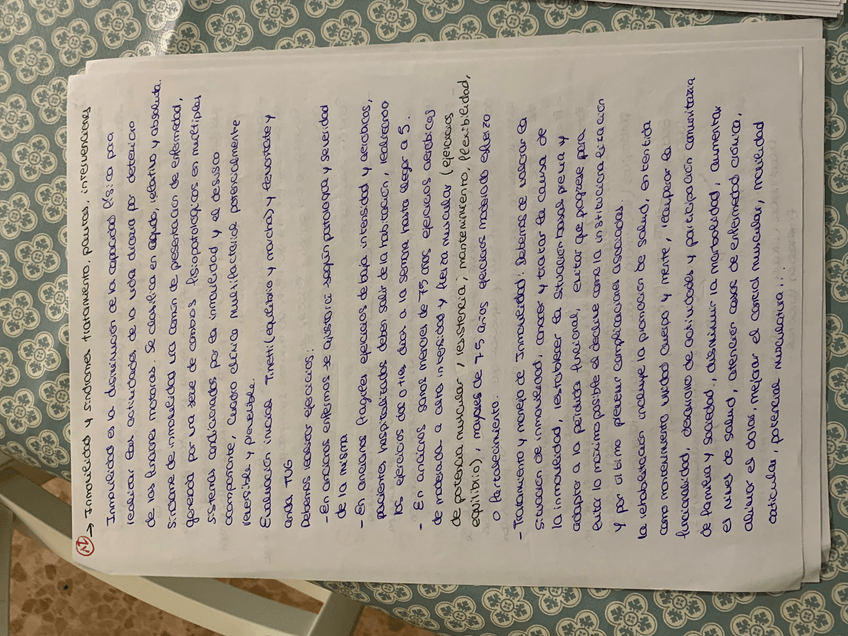 N → Inmovilidad y síndromes tratamiento, pautas, intervenciones
Inmovilidad es la disminución de la capacidad física para
realizar las actividades de la vida diaria por deterioro
de las funciones motoras. Se clasifica en aguda, relativa y absoluta.
Síndrome de inmovilidad vía común de presentación de enfermedad,
generada por una serie de cambios fisiopatológicos en múltiples
sistemas condicionados por la inmovilidad y el desuso
acompañante, cuadro clínico multifactorial potencialmente
reversible y prevenible.
Evaluación inicial Tinetti (equilibrio y marcha) y Levántate y
anda TUG
Debemos realizar ejercicios:
- En ancianos enfermos se ajustará según patología y severidad
de la misma
- En ancianos frágiles ejercicios de baja intensidad y aeróbicos,
pacientes hospitalizados deben salir de la habitación, realizando
los ejercicios dos o tres días a la semana hasta llegar a 5.
- En ancianos sanos menores de 75 años ejercicios aeróbicos
de moderada a alta intensidad y fuerza muscular (ejercicios
de potencia muscular, resistencia, mantenimiento, flexibilidad,
equilibrio), mayores de 75 años ejercicios moderado esfuerzo
o fortalecimiento.
- Tratamiento y manejo de Inmovilidad: Debemos de valorar la
situación de inmovilidad, conocer y tratar la causa de
la inmovilidad, restablecer la situación basal previa y
adaptar a la pérdida funcional, evitar que progrese para
evitar lo máximo posible el declive como la institucionalización
y por último prevenir complicaciones asociadas.
la rehabilitación incluye la promoción de salud, entendida
como mantenimiento unidad cuerpo y mente, recuperar la
funcionalidad, desempeño de actividades y participación comunitaria
de familia y sociedad, disminuir la morbilidad, aumentar
el nivel de salud, atención casos de enfermedad crónica,
aliviar el dolor, mejorar el control muscular, movilidad
articular, potencial musculatura...